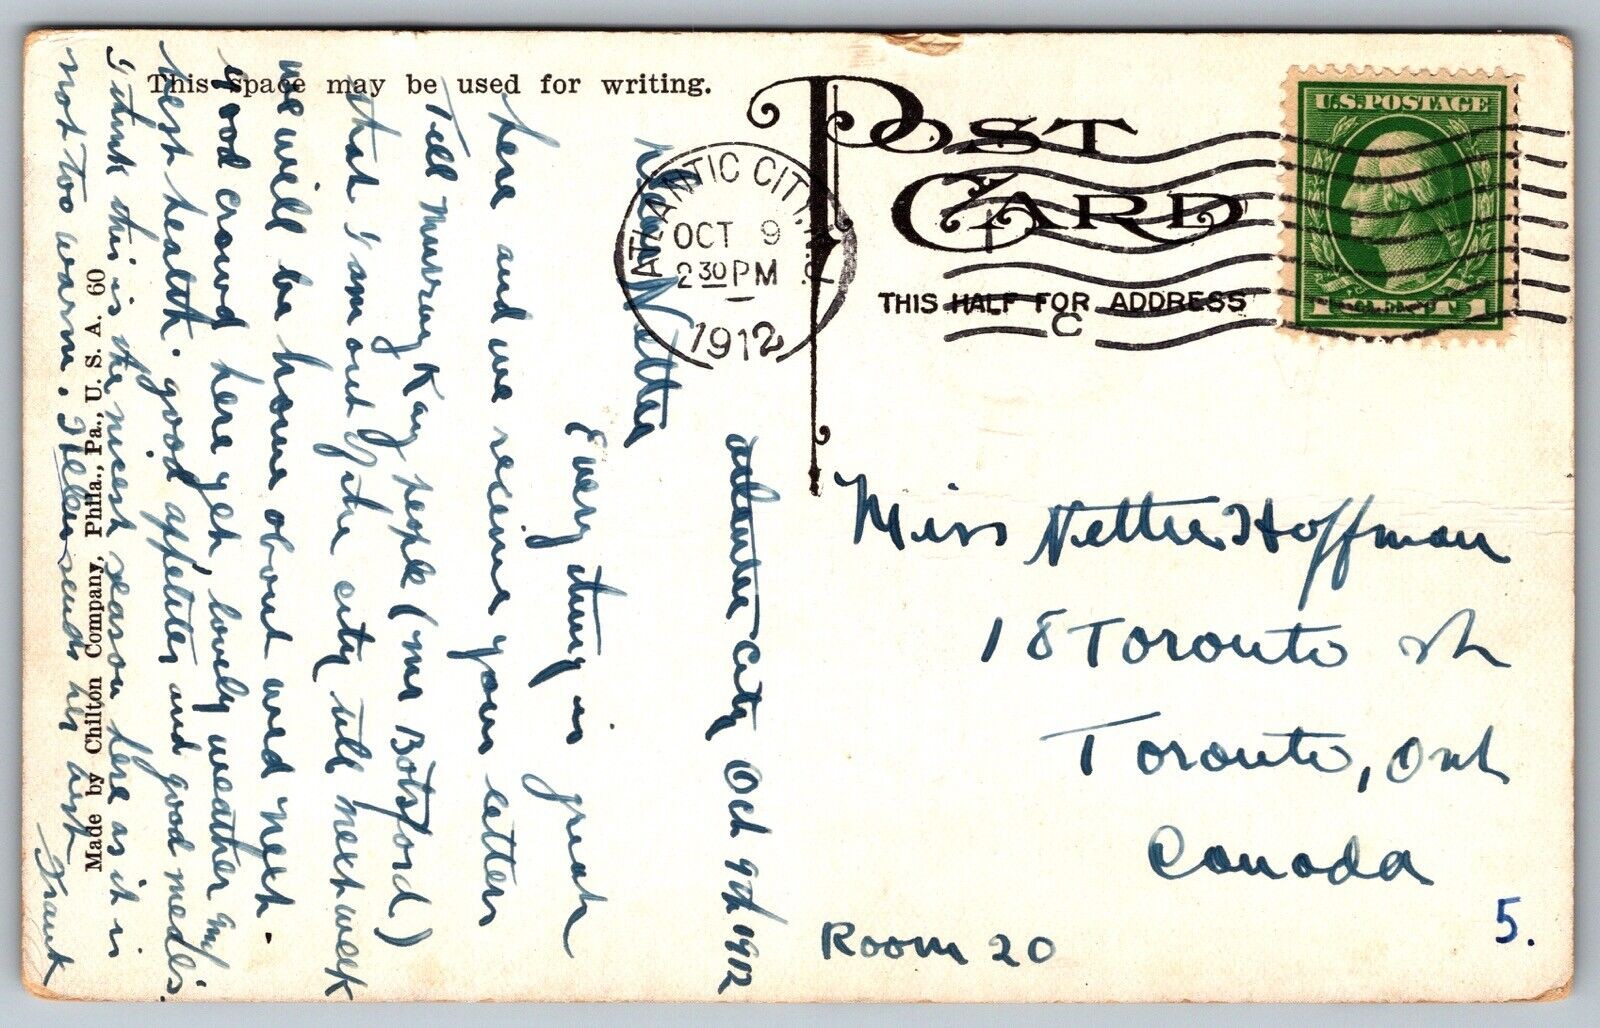 This space may be used for writing.
POST CARD
THIS HALF FOR ADDRESS
U.S. POSTAGE
ATLANTIC CITY, N.J.
OCT 9
2 30 PM
1912
C
Atlantic City Oct 9th 1912
Dear Nettie
Every thing is great
here and we receive your letters
Tell Murray Kay people (Mr Botsford)
that I am out of the city till next week
we will be home about wed next.
good crowd here yet, lovely weather my
best health. good appetites and good meals.
I think this is the nicest season here as it is
not too warm. Helen sends her best
Frank
Made by Chilton Company, Phila., Pa., U. S. A. 60
Miss Nettie Hoffman
18 Toronto st
Toronto, Ont
Canada
Room 20
5.